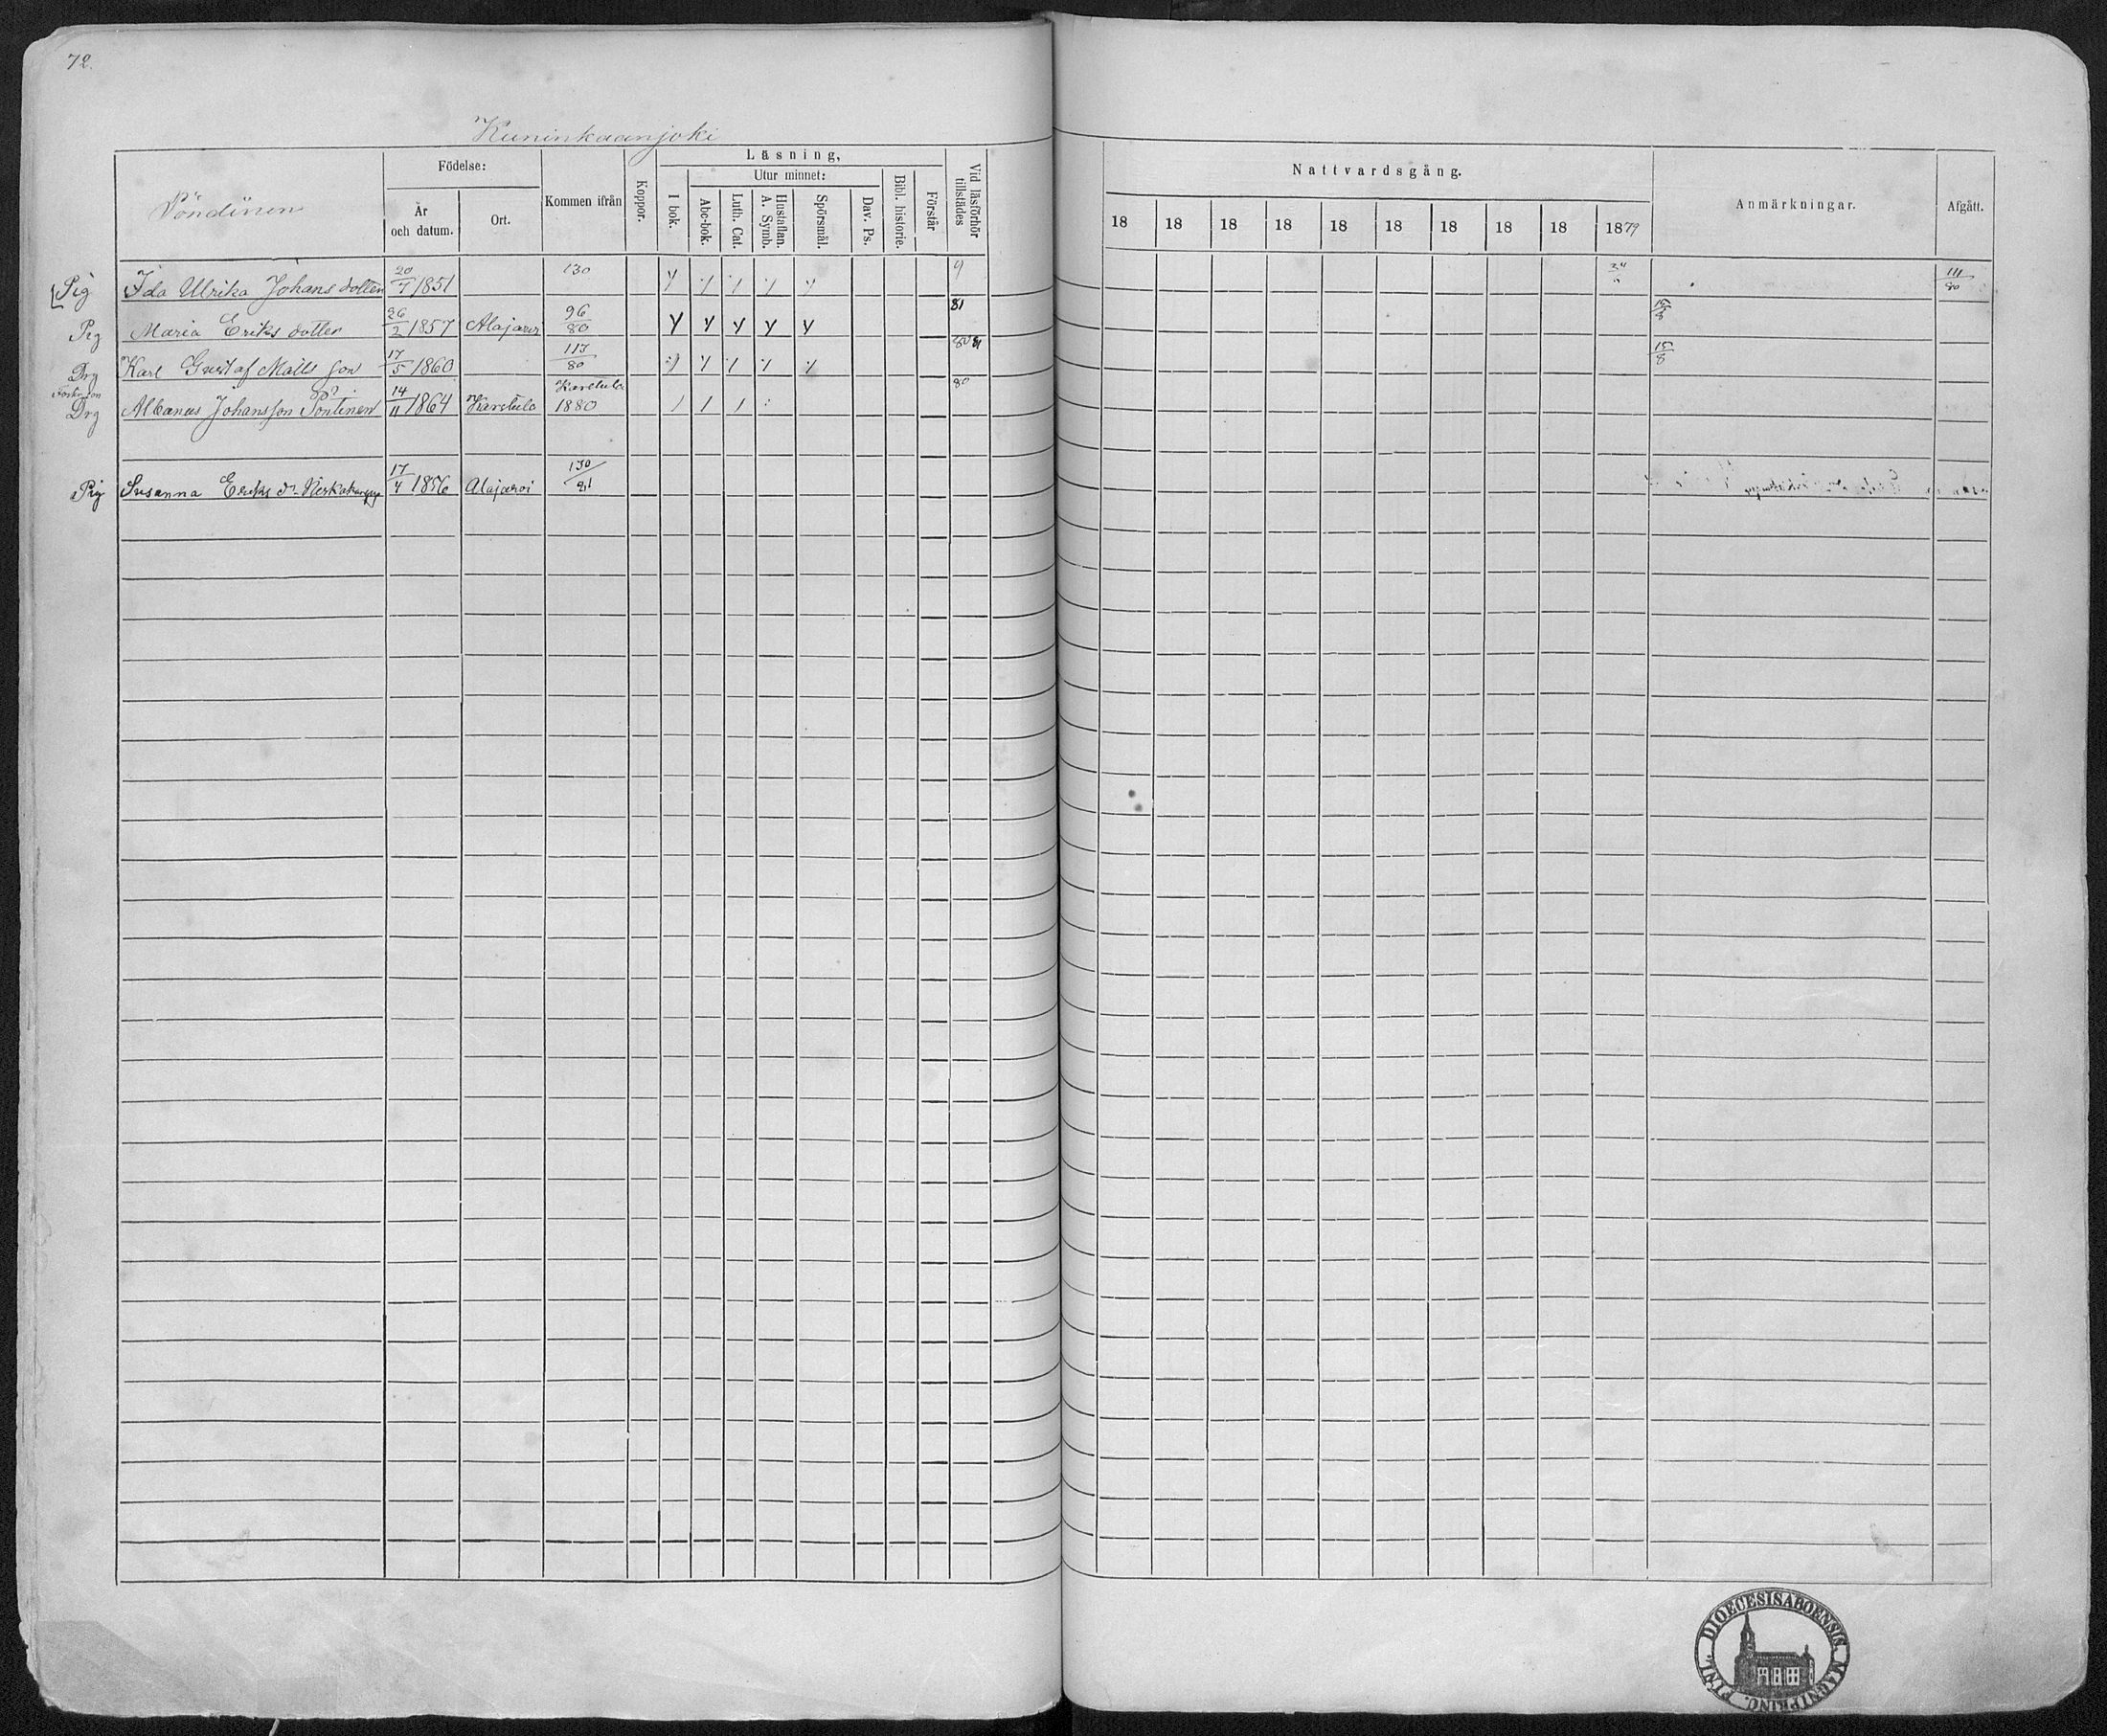 72.
Kuninkaanjoki
Pöndinen
Födelse:
År och datum.
Ort.
Kommen ifrån
Koppor.
Läsning,
I bok.
Utur minnet:
Abc-bok.
Luth. Cat.
Hustaflan. A. Symb.
Spörsmål.
Dav. Ps.
Bibl. historie.
Förstår
Vid läsförhör tillstädes
Nattvardsgång.
18 18 18 18 18 18 18 18 18 1879
Anmärkningar.
Afgått.
Pig Ida Ulrika Johans dotter 20/4 1851 130 9 24 111/80
Pig Maria Eriks dotter 26/2 1857 Alajärvi 96/80 81 15/8
Drg Karl Gustaf Matts son 17/5 1860 113/80 80 81 15/8
Drg Albanus Johansson Pöntinen 14/11 1864 Karstula Karstula 1880 80
Pig Susanna Eriks dr 17/4 1856 Alajärvi 130/81
DIOECESIS ABOENSIS MAGNI PRINC. FINL.